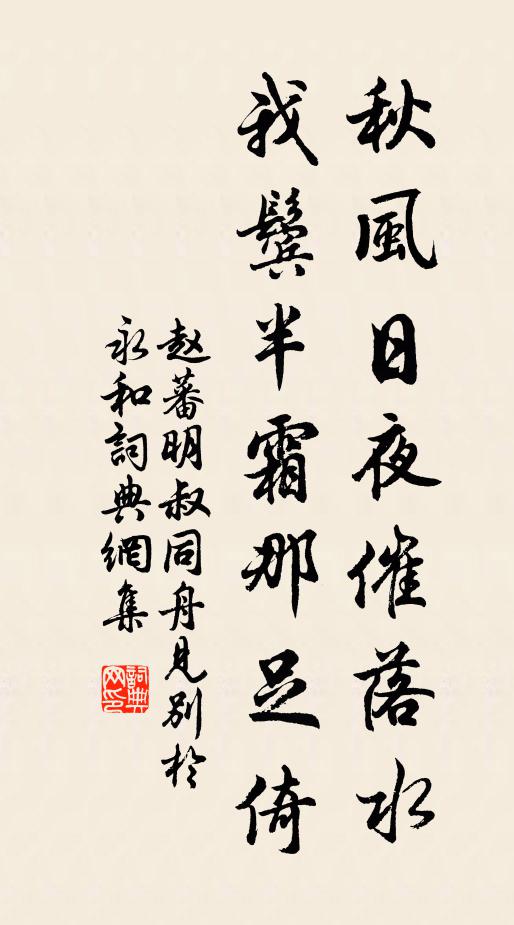 秋風日夜催落水
我鬢半霜那足倚
赵蕃明叔同舟見別於
永和詞典網集
詞典網印